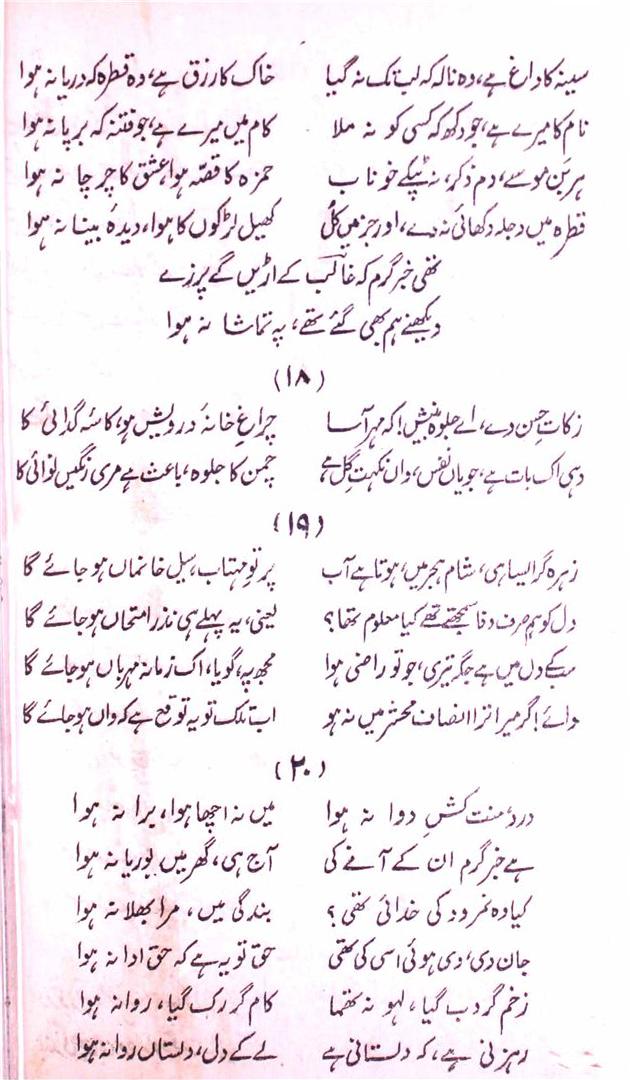 سینہ کا داغ ہے، وہ نالہ کہ لب تک نہ گیا خاک کا رزق ہے، وہ قطرہ کہ دریا نہ ہوا
نام کا میرے ہے، جو دکھ کہ کسی کو نہ ملا کام میں میرے ہے، جو فتنہ کہ برپا نہ ہوا
ہر بَنِ مو سے، دمِ ذکر، نہ ٹپکے خوناب حمزہ کا قصّہ ہوا، عشق کا چرچا نہ ہوا
قطرہ میں دجلہ دکھائی نہ دے، اور جز میں کُل کھیل لڑکوں کا ہوا، دیدۂ بینا نہ ہوا
تھی خبر گرم کہ غالبؔ کے اڑیں گے پرزے
دیکھنے ہم بھی گئے تھے، پہ تماشا نہ ہوا
(۱۸)
زکاتِ حسن دے، اے جلوۂ بینش! کہ مہر آسا چراغِ خانۂ درویش ہو، کاسہ گدائی کا
وہی اک بات ہے، جو یاں نفس، واں نکہتِ گل ہے چمن کا جلوہ، باعث ہے مری رنگیں نوائی کا
(۱۹)
زہرہ گر ایسا ہی، شامِ ہجر میں، ہوتا ہے آب پرتوِ مہتاب، سیلِ خانماں ہو جائے گا
دل کو ہم صرفِ وفا سمجھے تھے کیا معلوم تھا؟ یعنی، یہ پہلے ہی نذرِ امتحاں ہو جائے گا
سبکے دل میں ہے جگہ تیری، جو تو راضی ہوا مجھ پہ، گویا، اک زمانہ مہرباں ہو جائے گا
وائے! گر میرا ترا انصاف محشر میں نہ ہو اب تلک تو یہ توقع ہے کہ واں ہو جائے گا
(۲۰)
درد، منت کشِ دوا نہ ہوا میں نہ اچھا ہوا، برا نہ ہوا
ہے خبر گرم ان کے آنے کی آج ہی، گھر میں بوریا نہ ہوا
کیا وہ نمرود کی خدائی تھی؟ بندگی میں، مرا بھلا نہ ہوا
جان دی، دی ہوئی اسی کی تھی حق تو یہ ہے کہ حق ادا نہ ہوا
زخم گر دب گیا، لہو نہ تھما کام گر رک گیا، روا نہ ہوا
رہزنی ہے، کہ دلستانی ہے لے کے دل، دلستاں روانہ ہوا